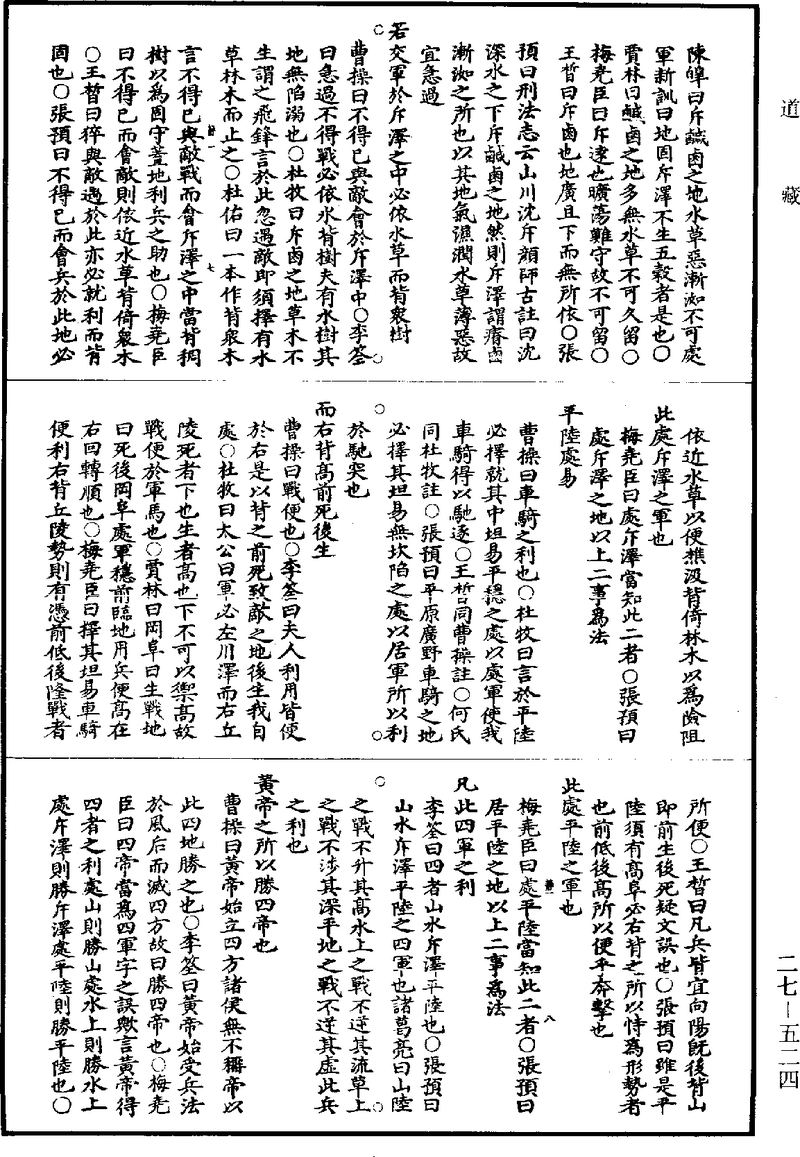 道藏
陳皥曰斥鹹鹵之地水草惡漸洳不可處
軍新訓曰地固斥澤不生五穀者是也○
賈林曰鹹鹵之地多無水草不可久留○
梅堯臣曰斥遠也曠蕩難守故不可留○
王晳曰斥鹵也地廣且下而無所依○張
預曰刑法志云山川沈斥顔師古註曰沈
深水之下斥鹹鹵之地然則斥澤謂瘠鹵
漸洳之所也以其地氣濕潤水草薄惡故
宜急過
若交軍於斥澤之中必依水草而背衆樹
曹操曰不得已與敵會於斥澤中○李筌
曰急過不得戰必依水背樹夫有水樹其
地無陷溺也○杜牧曰斥鹵之地草木不
生謂之飛鋒言於此忽遇敵即須擇有水
草林木而止之○杜佑曰一本作背衆木
言不得已與敵戰而會斥澤之中當背稠
樹以爲固守蓋地利兵之助也○梅堯臣
曰不得已而會敵則依近水草背倚衆木
○王晳曰猝與敵遇於此亦必就利而背
固也○張預曰不得已而會兵於此地必
依近水草以便樵汲背倚林木以爲險阻
此處斥澤之軍也
梅堯臣曰處斥澤當知此二者○張預曰
處斥澤之地以上二事爲法
平陸處易
曹操曰車騎之利也○杜牧曰言於平陸
必擇就其中坦易平穩之處以處軍使我
車騎得以馳逐○王晳同曹操註○何氏
同杜牧註○張預曰平原廣野車騎之地
必擇其坦易無坎陷之處以居軍所以利
於馳突也
而右背高前死後生
曹操曰戰便也○李筌曰夫人利用皆便
於右是以背之前死致敵之地後生我自
處○杜牧曰太公曰軍必左川澤而右丘
陵死者下也生者高也下不可以禦高故
戰便於軍馬也○賈林曰岡阜曰生戰地
曰死後岡阜處軍穩前臨地用兵便高在
右回轉順也○梅堯臣曰擇其坦易車騎
便利右背丘陵勢則有憑前低後隆戰者
所便○王晳曰凡兵皆宜向陽既後背山
即前生後死疑文誤也○張預曰雖是平
陸須有高阜必右背之所以恃爲形勢者
也前低後高所以便乎奔擊也
此處平陸之軍也
梅堯臣曰處平陸當知此二者○張預曰
居平陸之地以上二事爲法
凡此四軍之利
李筌曰四者山水斥澤平陸也○張預曰
山水斥澤平陸之四軍也諸葛亮曰山陸
之戰不升其高水上之戰不逆其流草上
之戰不涉其深平地之戰不逆其虛此兵
之利也
黃帝之所以勝四帝也
曹操曰黃帝始立四方諸侯無不稱帝以
此四地勝之也○李筌曰黃帝始受兵法
於風后而滅四方故曰勝四帝也○梅堯
臣曰四帝當爲四軍字之誤歟言黃帝得
四者之利處山則勝山處水上則勝水上
處斥澤則勝斥澤處平陸則勝平陸也○
二七—五二四